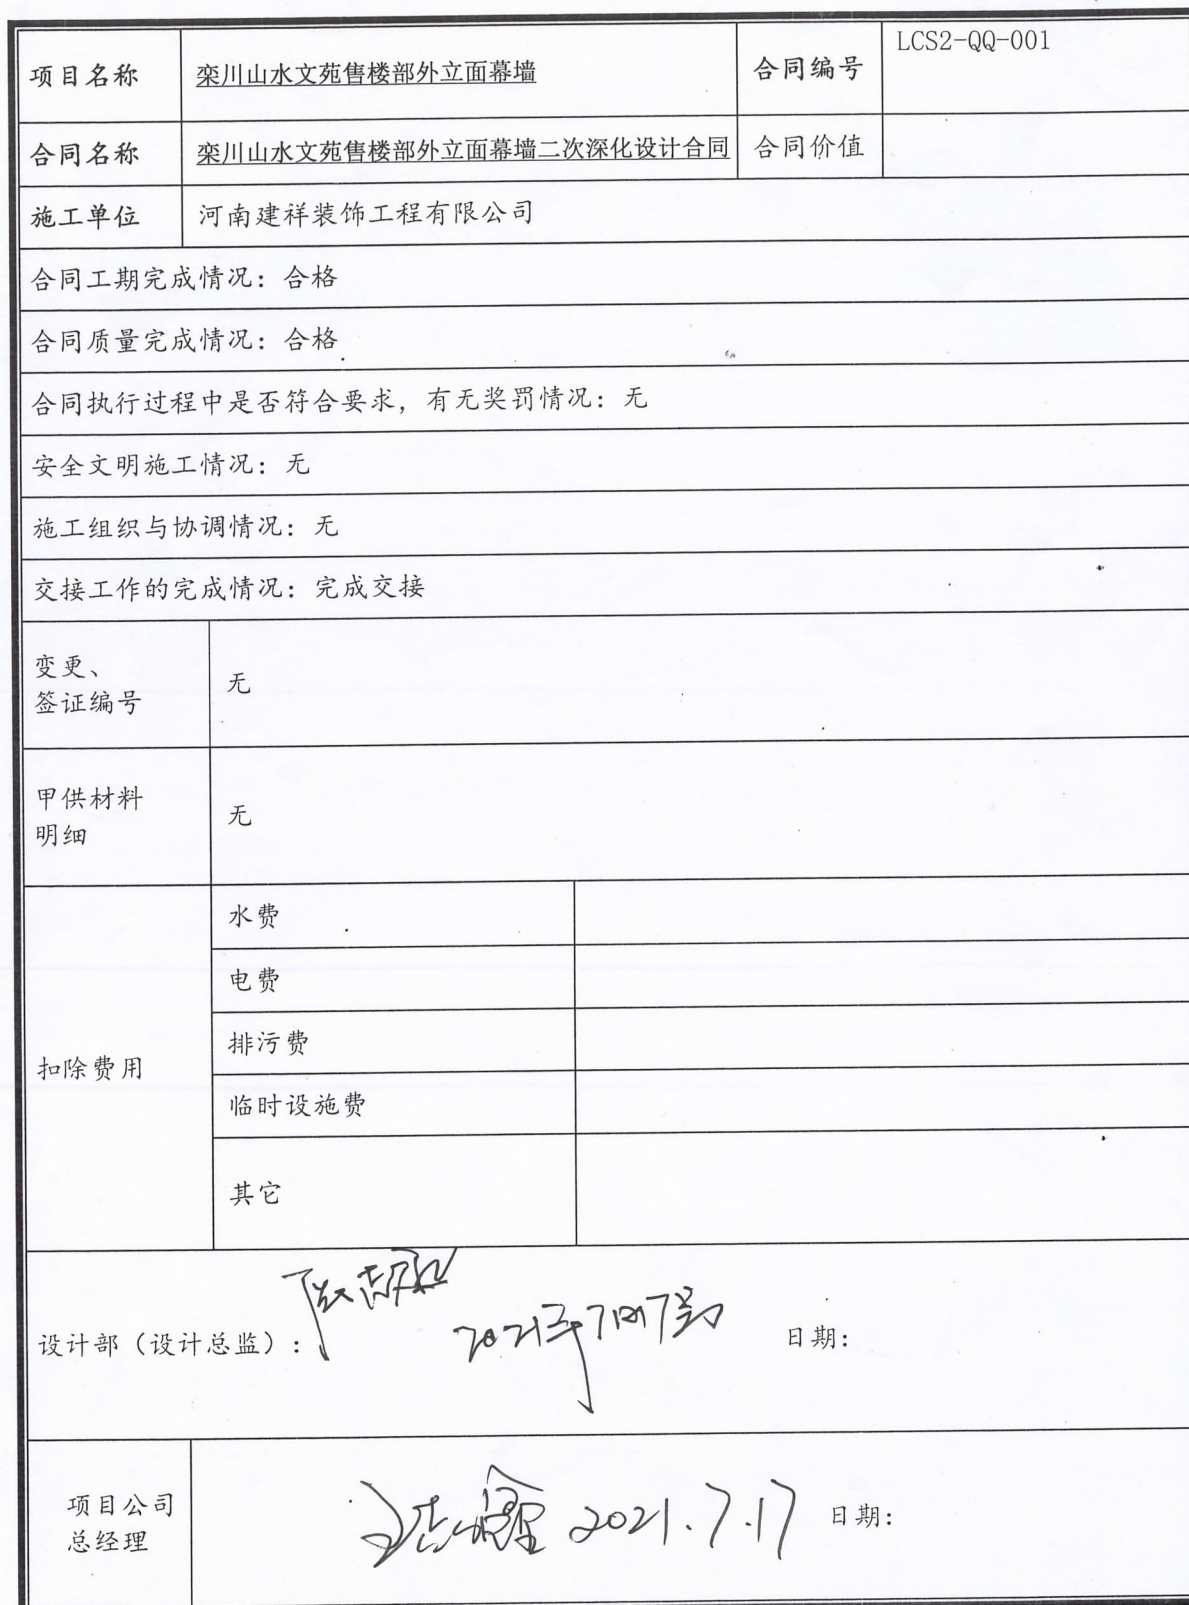 项目名称 栾川山水文苑售楼部外立面幕墙 合同编号 LCS2-QQ-001
合同名称 栾川山水文苑售楼部外立面幕墙二次深化设计合同 合同价值
施工单位 河南建祥装饰工程有限公司
合同工期完成情况：合格
合同质量完成情况：合格
合同执行过程中是否符合要求，有无奖罚情况：无
安全文明施工情况：无
施工组织与协调情况：无
交接工作的完成情况：完成交接
变更、
签证编号
无
甲供材料
明细
无
扣除费用
水费
电费
排污费
临时设施费
其它
设计部（设计总监）： 日期：
项目公司
总经理
2021.7.17 日期：